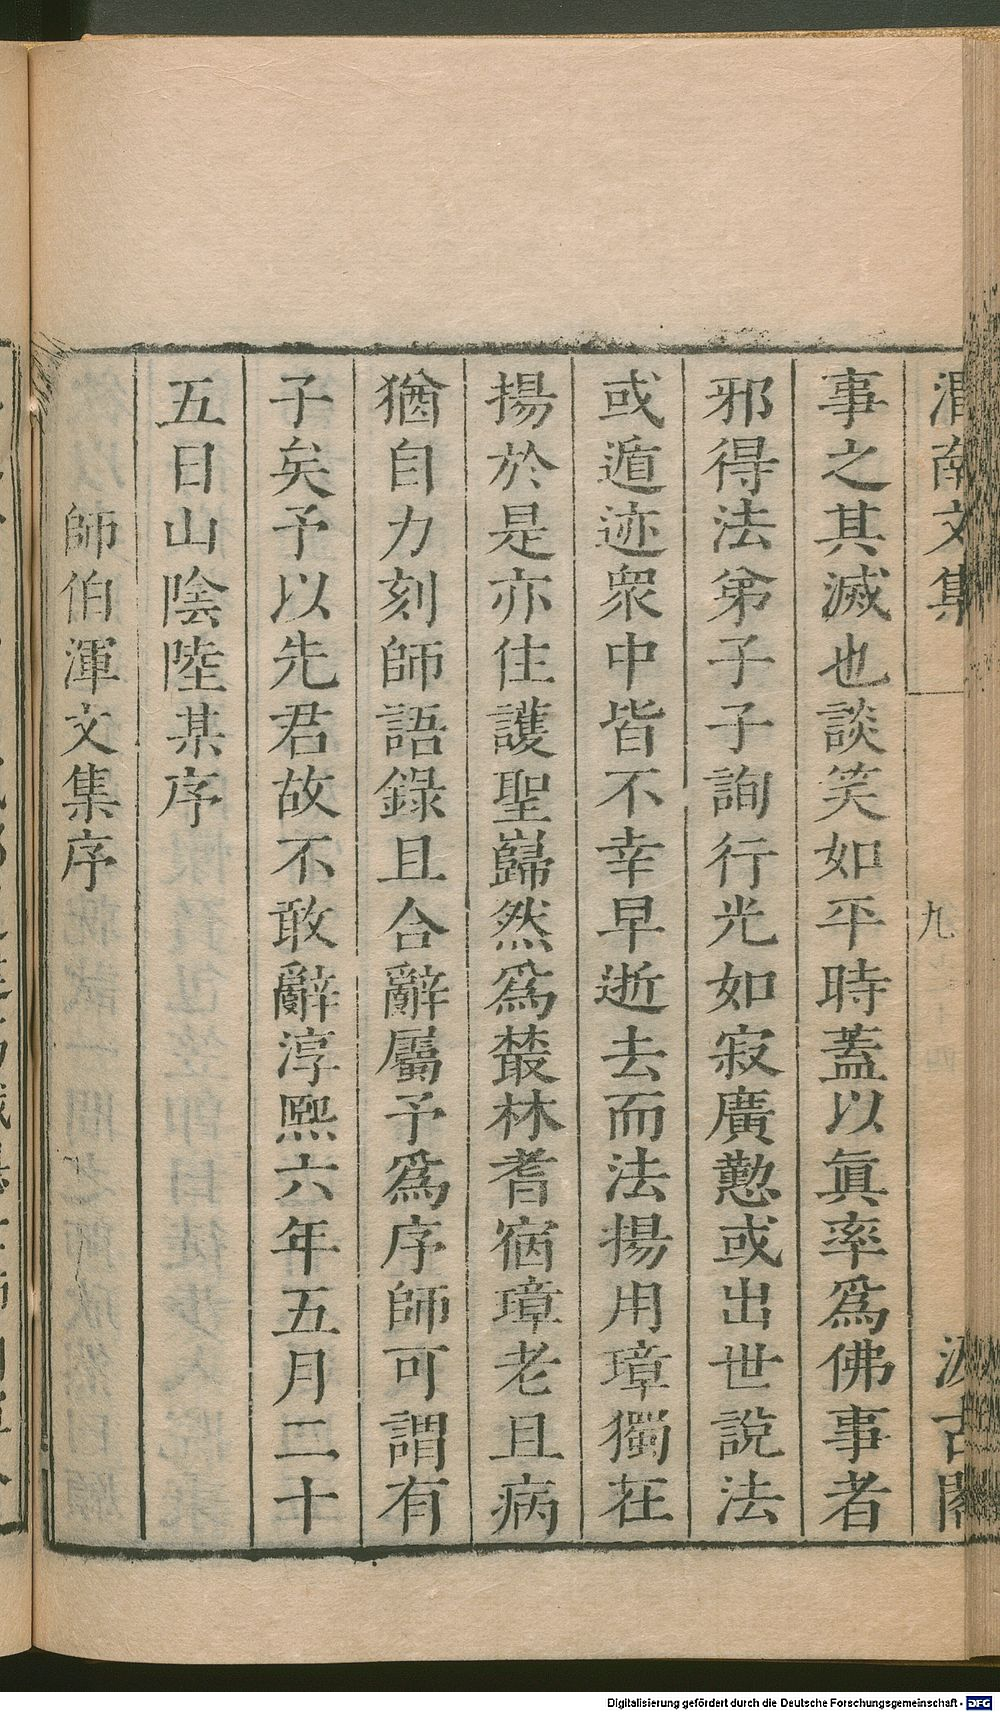 渭南文集 九 汲古閣
事之其滅也談笑如平時蓋以眞率爲佛事者
邪得法弟子子詢行光如寂廣懃或出世說法
或遁迹衆中皆不幸早逝去而法揚用璋獨在
揚於是亦住護聖巋然爲叢林耆宿璋老且病
猶自力刻師語錄且合辭屬予爲序師可謂有
子矣予以先君故不敢辭淳熙六年五月二十
五日山陰陸某序
師伯渾文集序
Digitalisierung gefördert durch die Deutsche Forschungsgemeinschaft - DFG